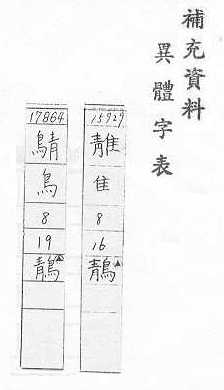 補充資料
異體字表
15929
隹
8
16
鶄▲
17864
鳥
8
19
鶄▲